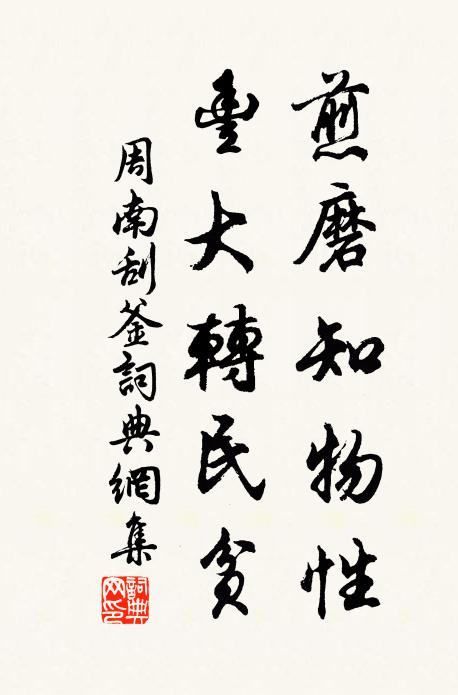 煎磨知物性
豐大轉民貧
周南刮釜詞典網集
詞典網印